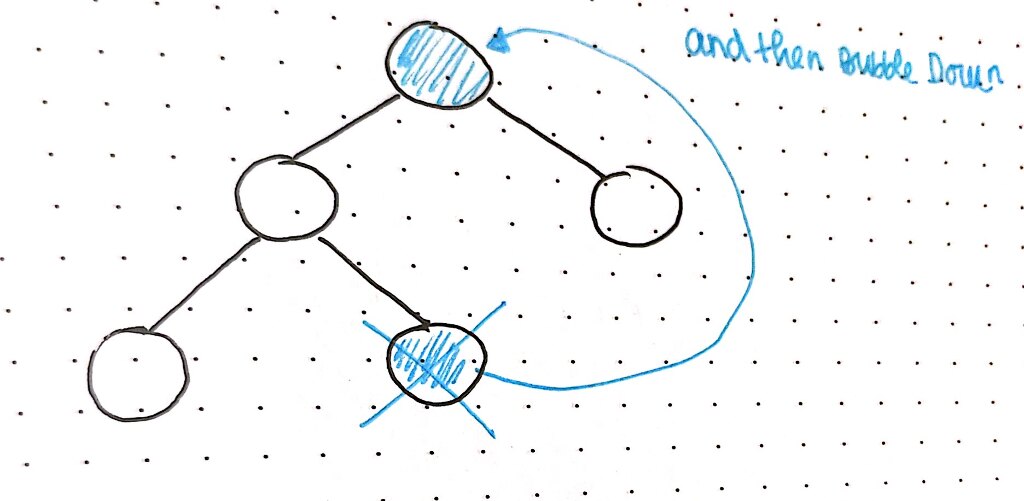 and then Bubble Down